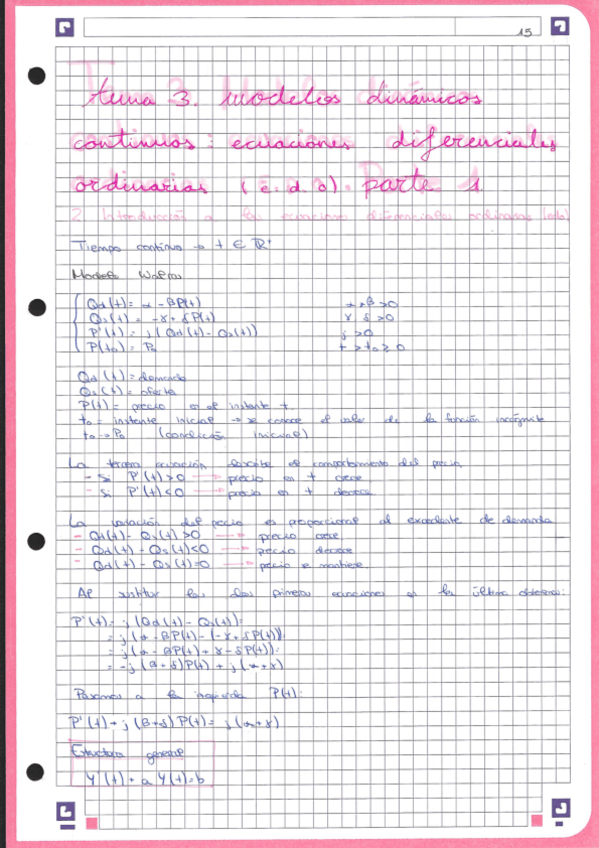 15
Tema 3. Modelos dinámicos
continuos: ecuaciones diferenciales
ordinarias (e.d.o). Parte 1
2 Introducción a las ecuaciones diferenciales ordinarias (edo)
Tiempo continuo → t ∈ ℝ⁺
Modelo Walras
Qd(t) = α - βP(t) α, β > 0
Qs(t) = -γ + δP(t) γ, δ > 0
P'(t) = j(Qd(t) - Qs(t)) j > 0
P(t₀) = P₀ t > t₀ ≥ 0
Qd(t) = demanda
Qs(t) = oferta
P(t) = precio en el instante t.
t₀ = instante inicial → se conoce el valor de la función incógnita
t₀ → P₀ (condición inicial)
La tercera ecuación describe el comportamiento del precio.
- Si P'(t) > 0 → precio en t crece
- Si P'(t) < 0 → precio en t decrece
La variación del precio es proporcional al excedente de demanda
- Qd(t) - Qs(t) > 0 → precio crece
- Qd(t) - Qs(t) < 0 → precio decrece
- Qd(t) - Qs(t) = 0 → precio se mantiene.
Al sustituir las dos primeras ecuaciones en la última obtenemos:
P'(t) = j(Qd(t) - Qs(t)) =
= j(α - βP(t) - (-γ + δP(t))) =
= j(α - βP(t) + γ - δP(t)) =
= -j(β + δ)P(t) + j(α + γ)
Pasamos a la izquierda P(t):
P'(t) + j(β + δ)P(t) = j(α + γ)
Estructura general
Y'(t) + a Y(t) = b